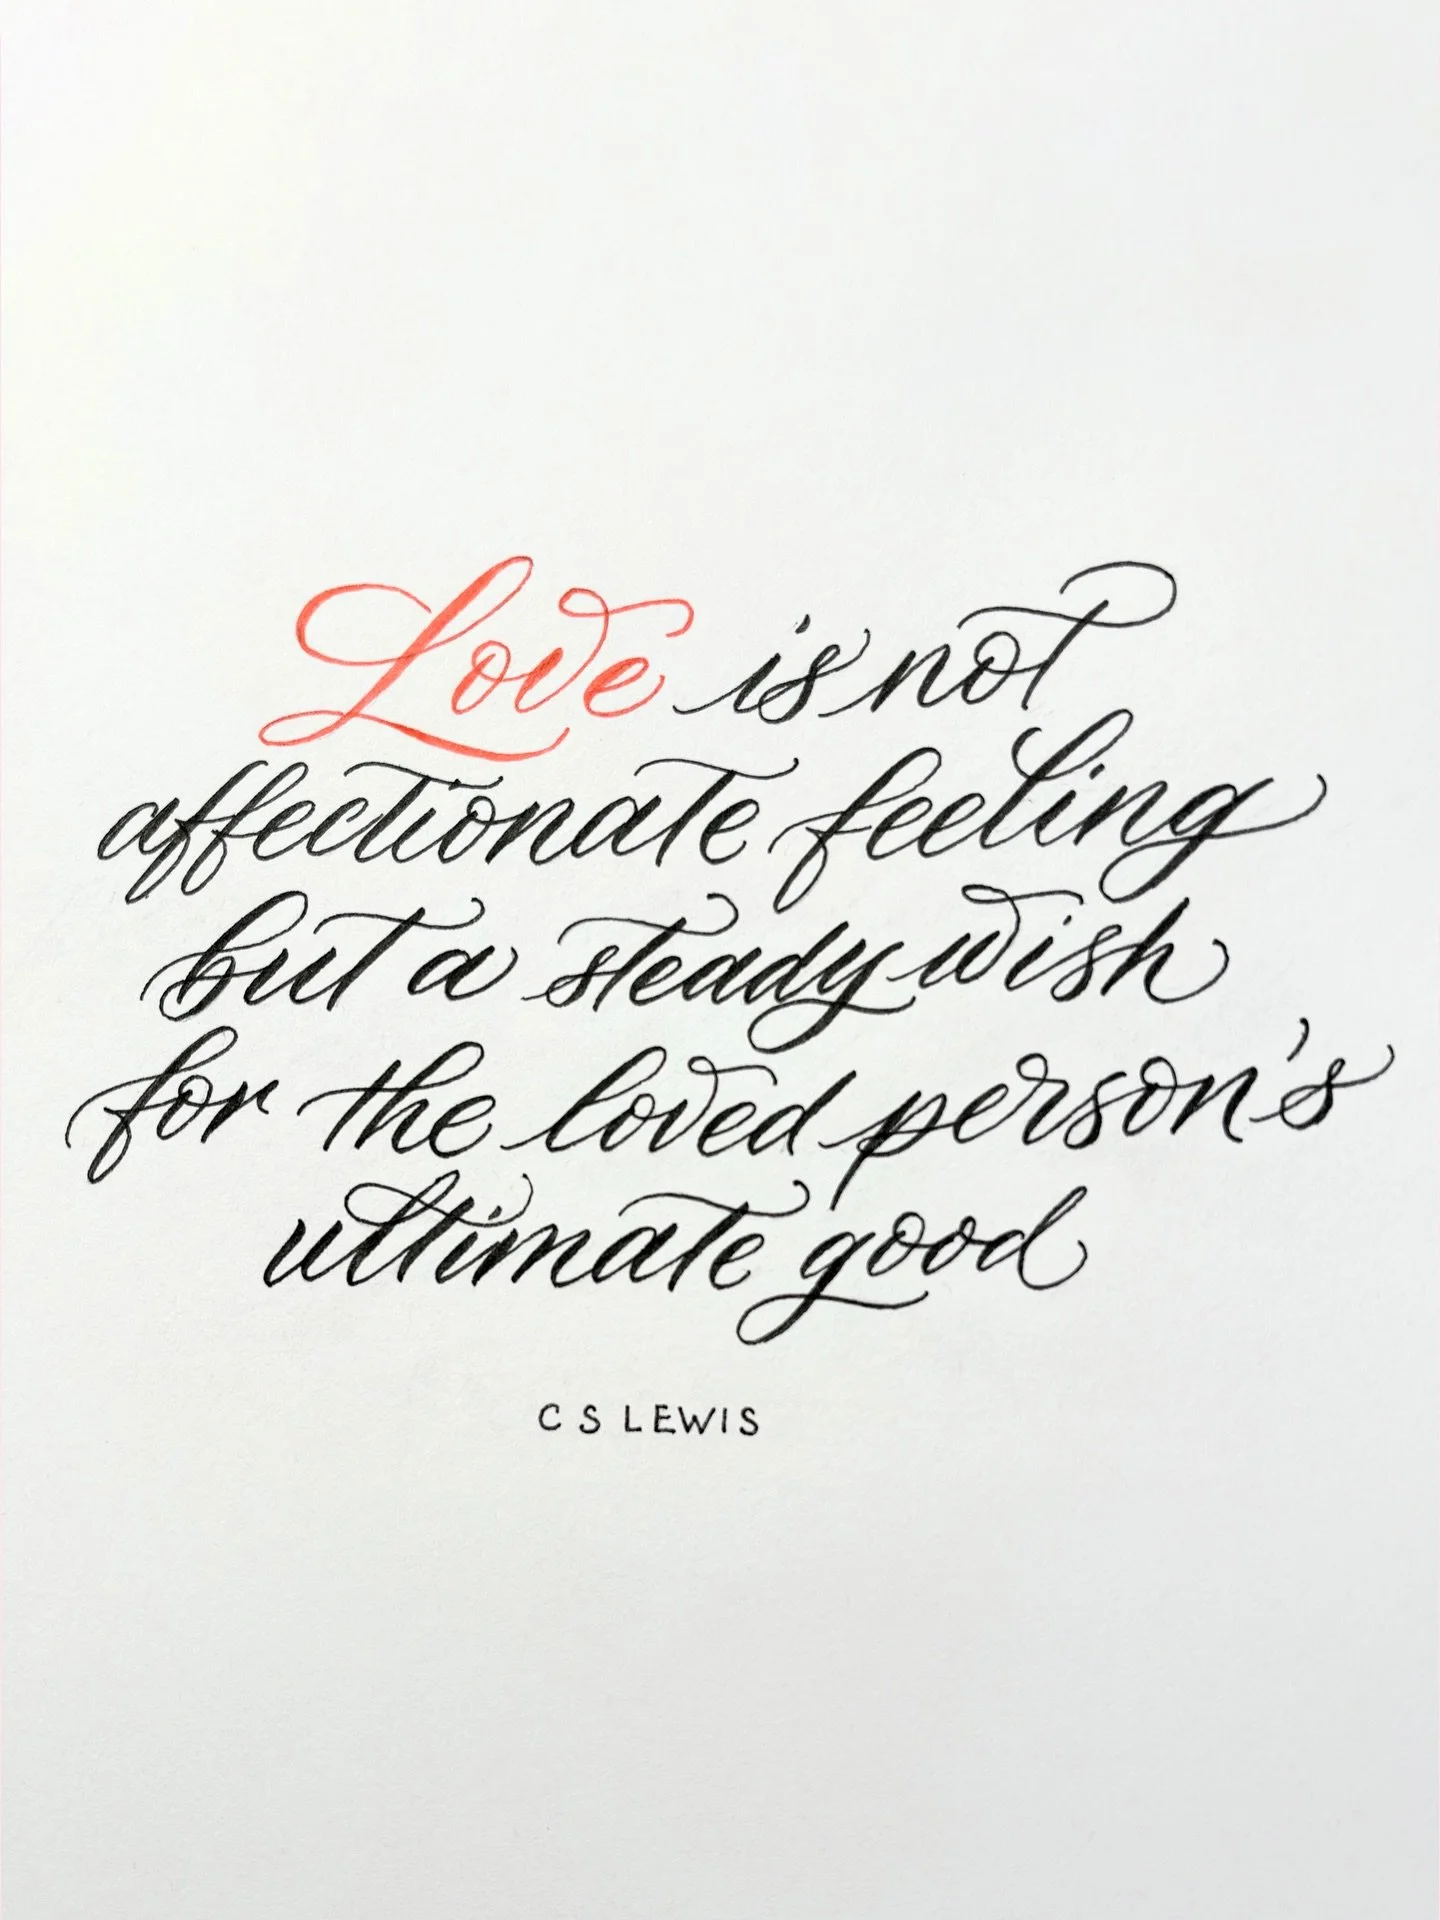 Love is not
affectionate feeling
but a steady wish
for the loved person's
ultimate good
C S LEWIS